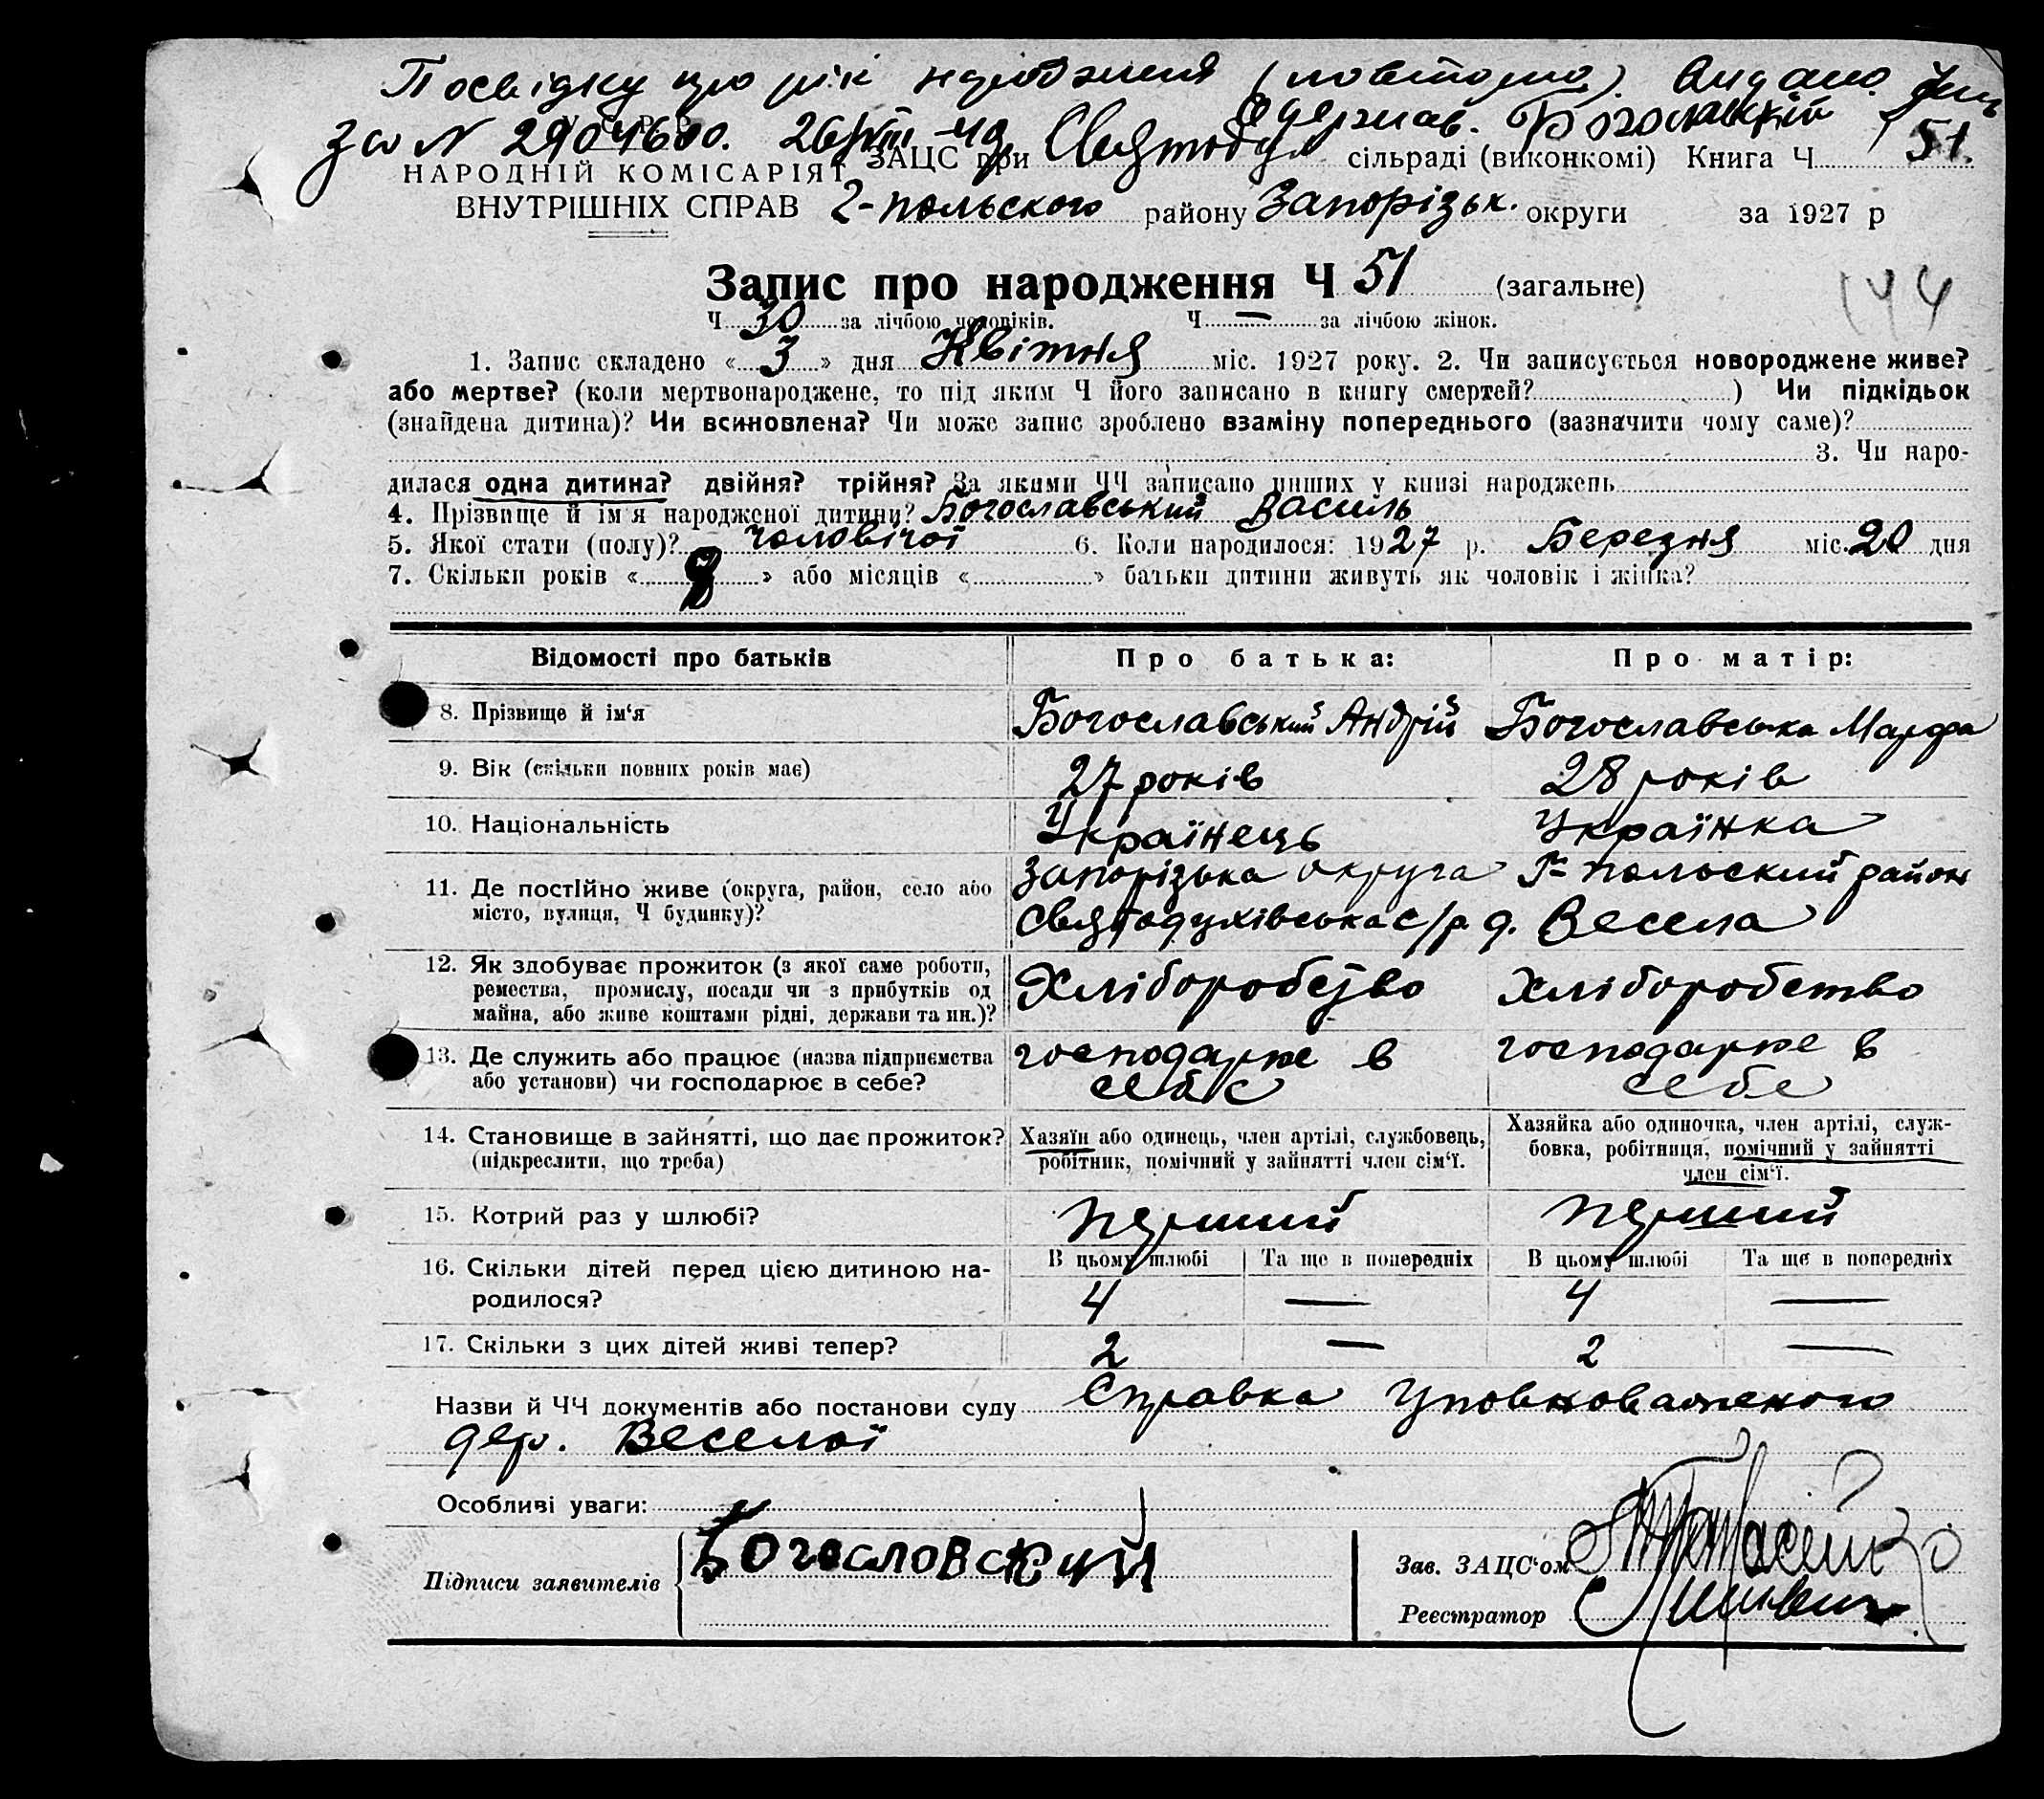 Посвідку про рік народження (повторно). Видано
за N 2904600. 26/VIII-49 Одержав. Богославський
У.С.Р.Р.
НАРОДНІЙ КОМІСАРІЯТ ЗАЦС при Святодух сільраді (виконкомі) Книга Ч 51.
ВНУТРІШНІХ СПРАВ 2-польского району Запорізьк. округи за 1927 р
Запис про народження Ч 51 (загальне)
144
Ч 30 за лічбою чоловіків. Ч — за лічбою жінок.
1. Запис складено « 3 » дня Квітня міс. 1927 року. 2. Чи записується новороджене живе?
або мертве? (коли мертвонароджене, то під яким Ч його записано в книгу смертей? ) Чи підкідьок
(знайдена дитина)? Чи всиновлена? Чи може запис зроблено взаміну попереднього (зазначити чому саме)?
3. Чи наро-
дилася одна дитина? двійня? трійня? За якими ЧЧ записано инших у книзі народжень
4. Прізвище й імя народженої дитини? Богославський Василь
5. Якої стати (полу)? чоловічої 6. Коли народилося: 1927 р. Березня міс. 20 дня
7. Скільки років « 8 » або місяців « » батьки дитини живуть як чоловік і жінка?
Відомості про батьків Про батька: Про матір:
8. Прізвище й ім‘я Богославський Андрій Богославська Марфа
9. Вік (скільки повних років має) 27 років 28 років
10. Національність Українець Українка
11. Де постійно живе (округа, район, село або Запорізька округа Г-польский район
місто, вулиця, Ч будинку)? Святодухівська с/р д. Весела
12. Як здобуває прожиток (з якої саме роботи,
ремества, промислу, посади чи з прибутків од Хліборобство Хліборобство
майна, або живе коштами рідні, держави та ин.)?
13. Де служить або працює (назва підприємства господарює в господарює в
або установи) чи господарює в себе? себе себе
14. Становище в зайнятті, що дає прожиток? Хазяїн або одинець, член артілі, службовець, Хазяйка або одиночка, член артілі, служ-
(підкреслити, що треба) робітник, помічний у зайнятті член сім‘ї. бовка, робітниця, помічний у зайнятті
член сім‘ї.
15. Котрий раз у шлюбі? перший перший
В цьому шлюбі Та ще в попередніх В цьому шлюбі Та ще в попередніх
16. Скільки дітей перед цією дитиною на-
родилося? 4 — 4 —
17. Скільки з цих дітей живі тепер? 2 — 2 —
Назви й ЧЧ документів або постанови суду Справка Уповноваженого
дер. Веселої
Особливі уваги:
Підписи заявителів Богословский
Зав. ЗАЦС‘ом
Реєстратор